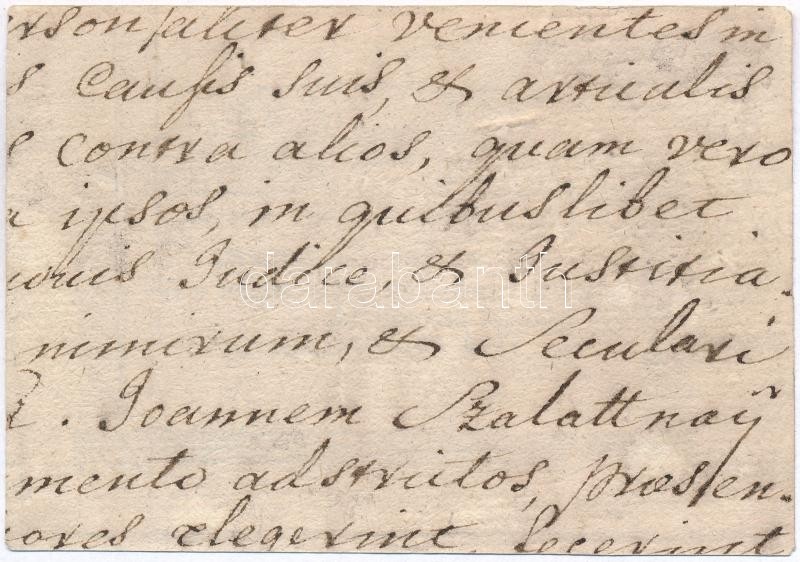 ersonaliter venientes in
s Causis suis, & articulis
s contra alios, quam vero
a ipsos, in quibuslibet
uis Judice, & Justitia-
nimirum, & Seculari
Joannem Szalattnaÿ
mento adstrictos, præsen-
ores elegerint, fecerint
darabanth